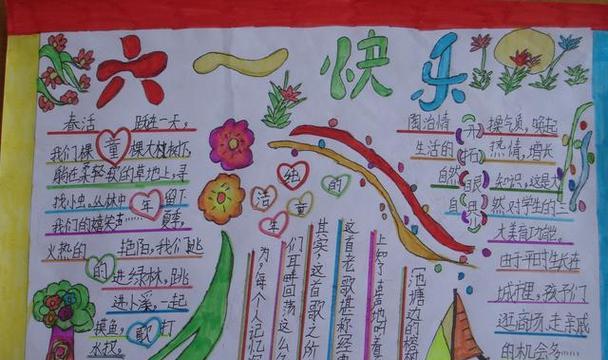 六一快乐
春活 跃在一天，
我们棵童棵大槐树下，
躺在柔轻软的草地上，寻
找小虫。丛林中年留下
我们的嬉笑声……夏季，
火热的 艳阳，我们跳
的进绿林，跳
进小溪，一起
摸鱼，歌打
水仗。
纯
活 的
童
年
为，每个人记忆深
们耳畔回荡这么久
其实，这首歌之所
这首老歌堪称经典
池塘边的榕树
陶冶情开操气质，唤起
生活的拓热情，增长
自然眼知识，这是大
自思然对学生的二
大美育功能。
由于平时生长在
城市里，孩子们
逛商场、走亲戚
的机会多……